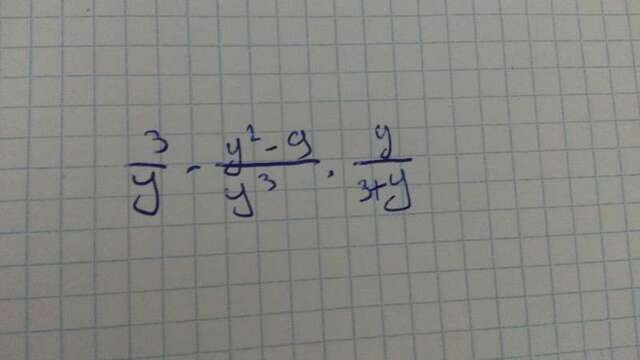 3/y - (y² - 9)/y³ · y/(3+y)